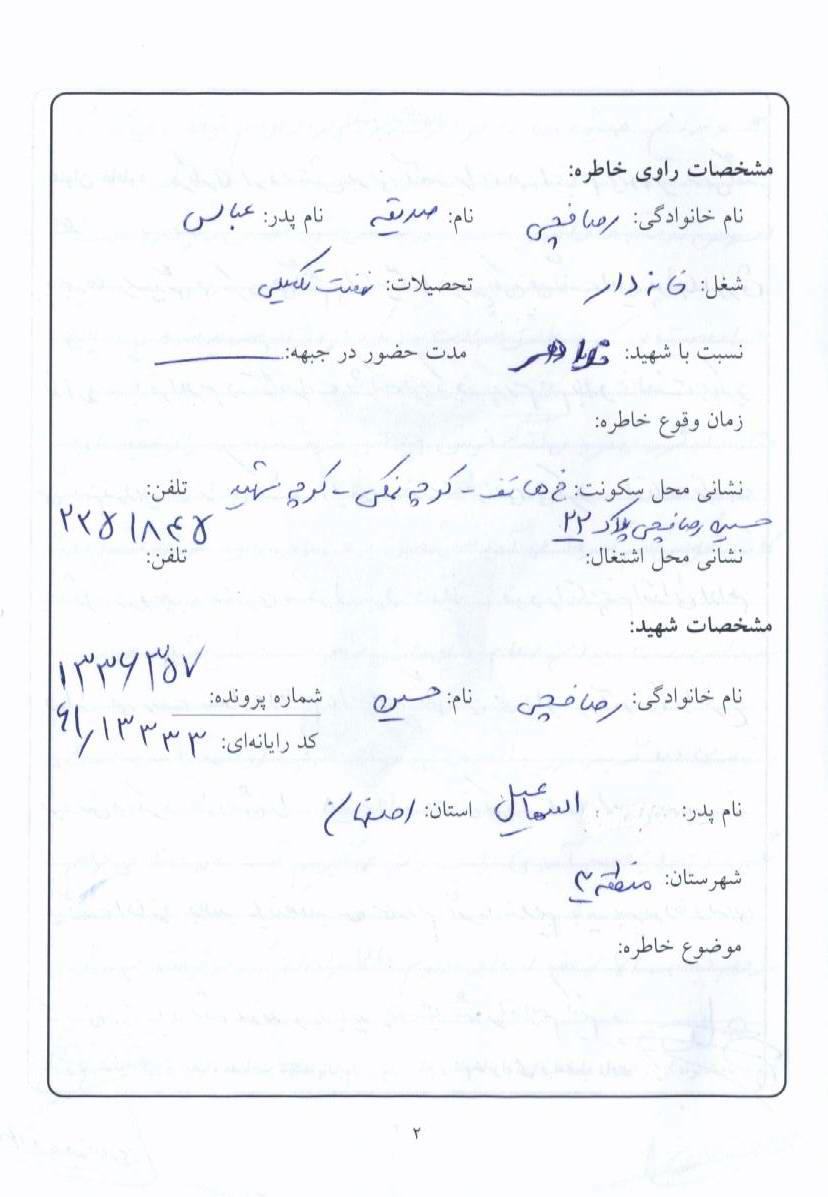 مشخصات راوی خاطره:
نام خانوادگی: رضافچی نام: صدیقه نام پدر: عباس
شغل: خانه دار تحصیلات: نهضت تکمیلی
نسبت با شهید: مدت حضور در جبهه:
زمان وقوع خاطره:
نشانی محل سکونت: خ هاتف - کوچه نمکی - کوچه شهید تلفن:
حسین رضافچی پلاک ۲۲ ۲۲۵۱۸۴۵
نشانی محل اشتغال: تلفن:
مشخصات شهید:
نام خانوادگی: رضافچی نام: حسین شماره پرونده: ۱۳۳۶۳۵۷
کد رایانه‌ای: ۶۱/۱۳۳۳۳
نام پدر: اسماعیل استان: اصفهان
شهرستان: منطقه ۳
موضوع خاطره:
۲